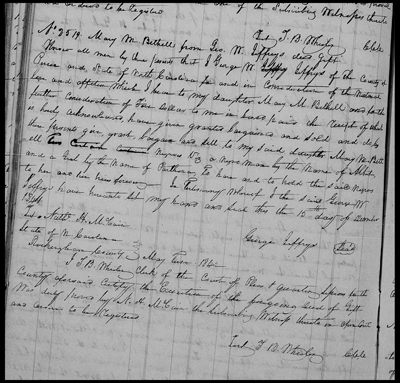 one of the Subscribing Witnesses thereto
and orders to be Registered
Test T. B. Wheeler Clk
No 2519. Mary M Bethell from Geo. W. Jeffreys deed Gift
Know all men by these presents that I George W. Jeffreys of the County of
and State of North Carolina for and in Consideration of the Natural
love and affection which I have to my daughter Mary M. Bethell and for the
further Consideration of Five dollars to me in hand paid the receipt of which
is hereby acknowledged, have given granted bargained and sold and do by
these presents give grant bargain and sell to my said daughter Mary M. Beth
ell Negroes Viz a Negro Man by the Name of
and a Girl by the Name of to have and to hold the said Negroes
to her and her heirs forever. In Testimony whereof I the said George W.
Jeffreys have hereunto set my hand and seal this the 15th day of
George Jeffreys Seal
Test Nathl H. McCain
State of N Carolina
Rockingham County May Term
I T. B. Wheeler Clerk of the Court of Pleas & Quarter Sessions for the
County aforesaid Certify the Execution of the foregoing deed of Gift
Was duly proven by N. H. McCain the Subscribing Witness thereto in open Court
and ordered to be Registered
Test T B Wheeler Clk